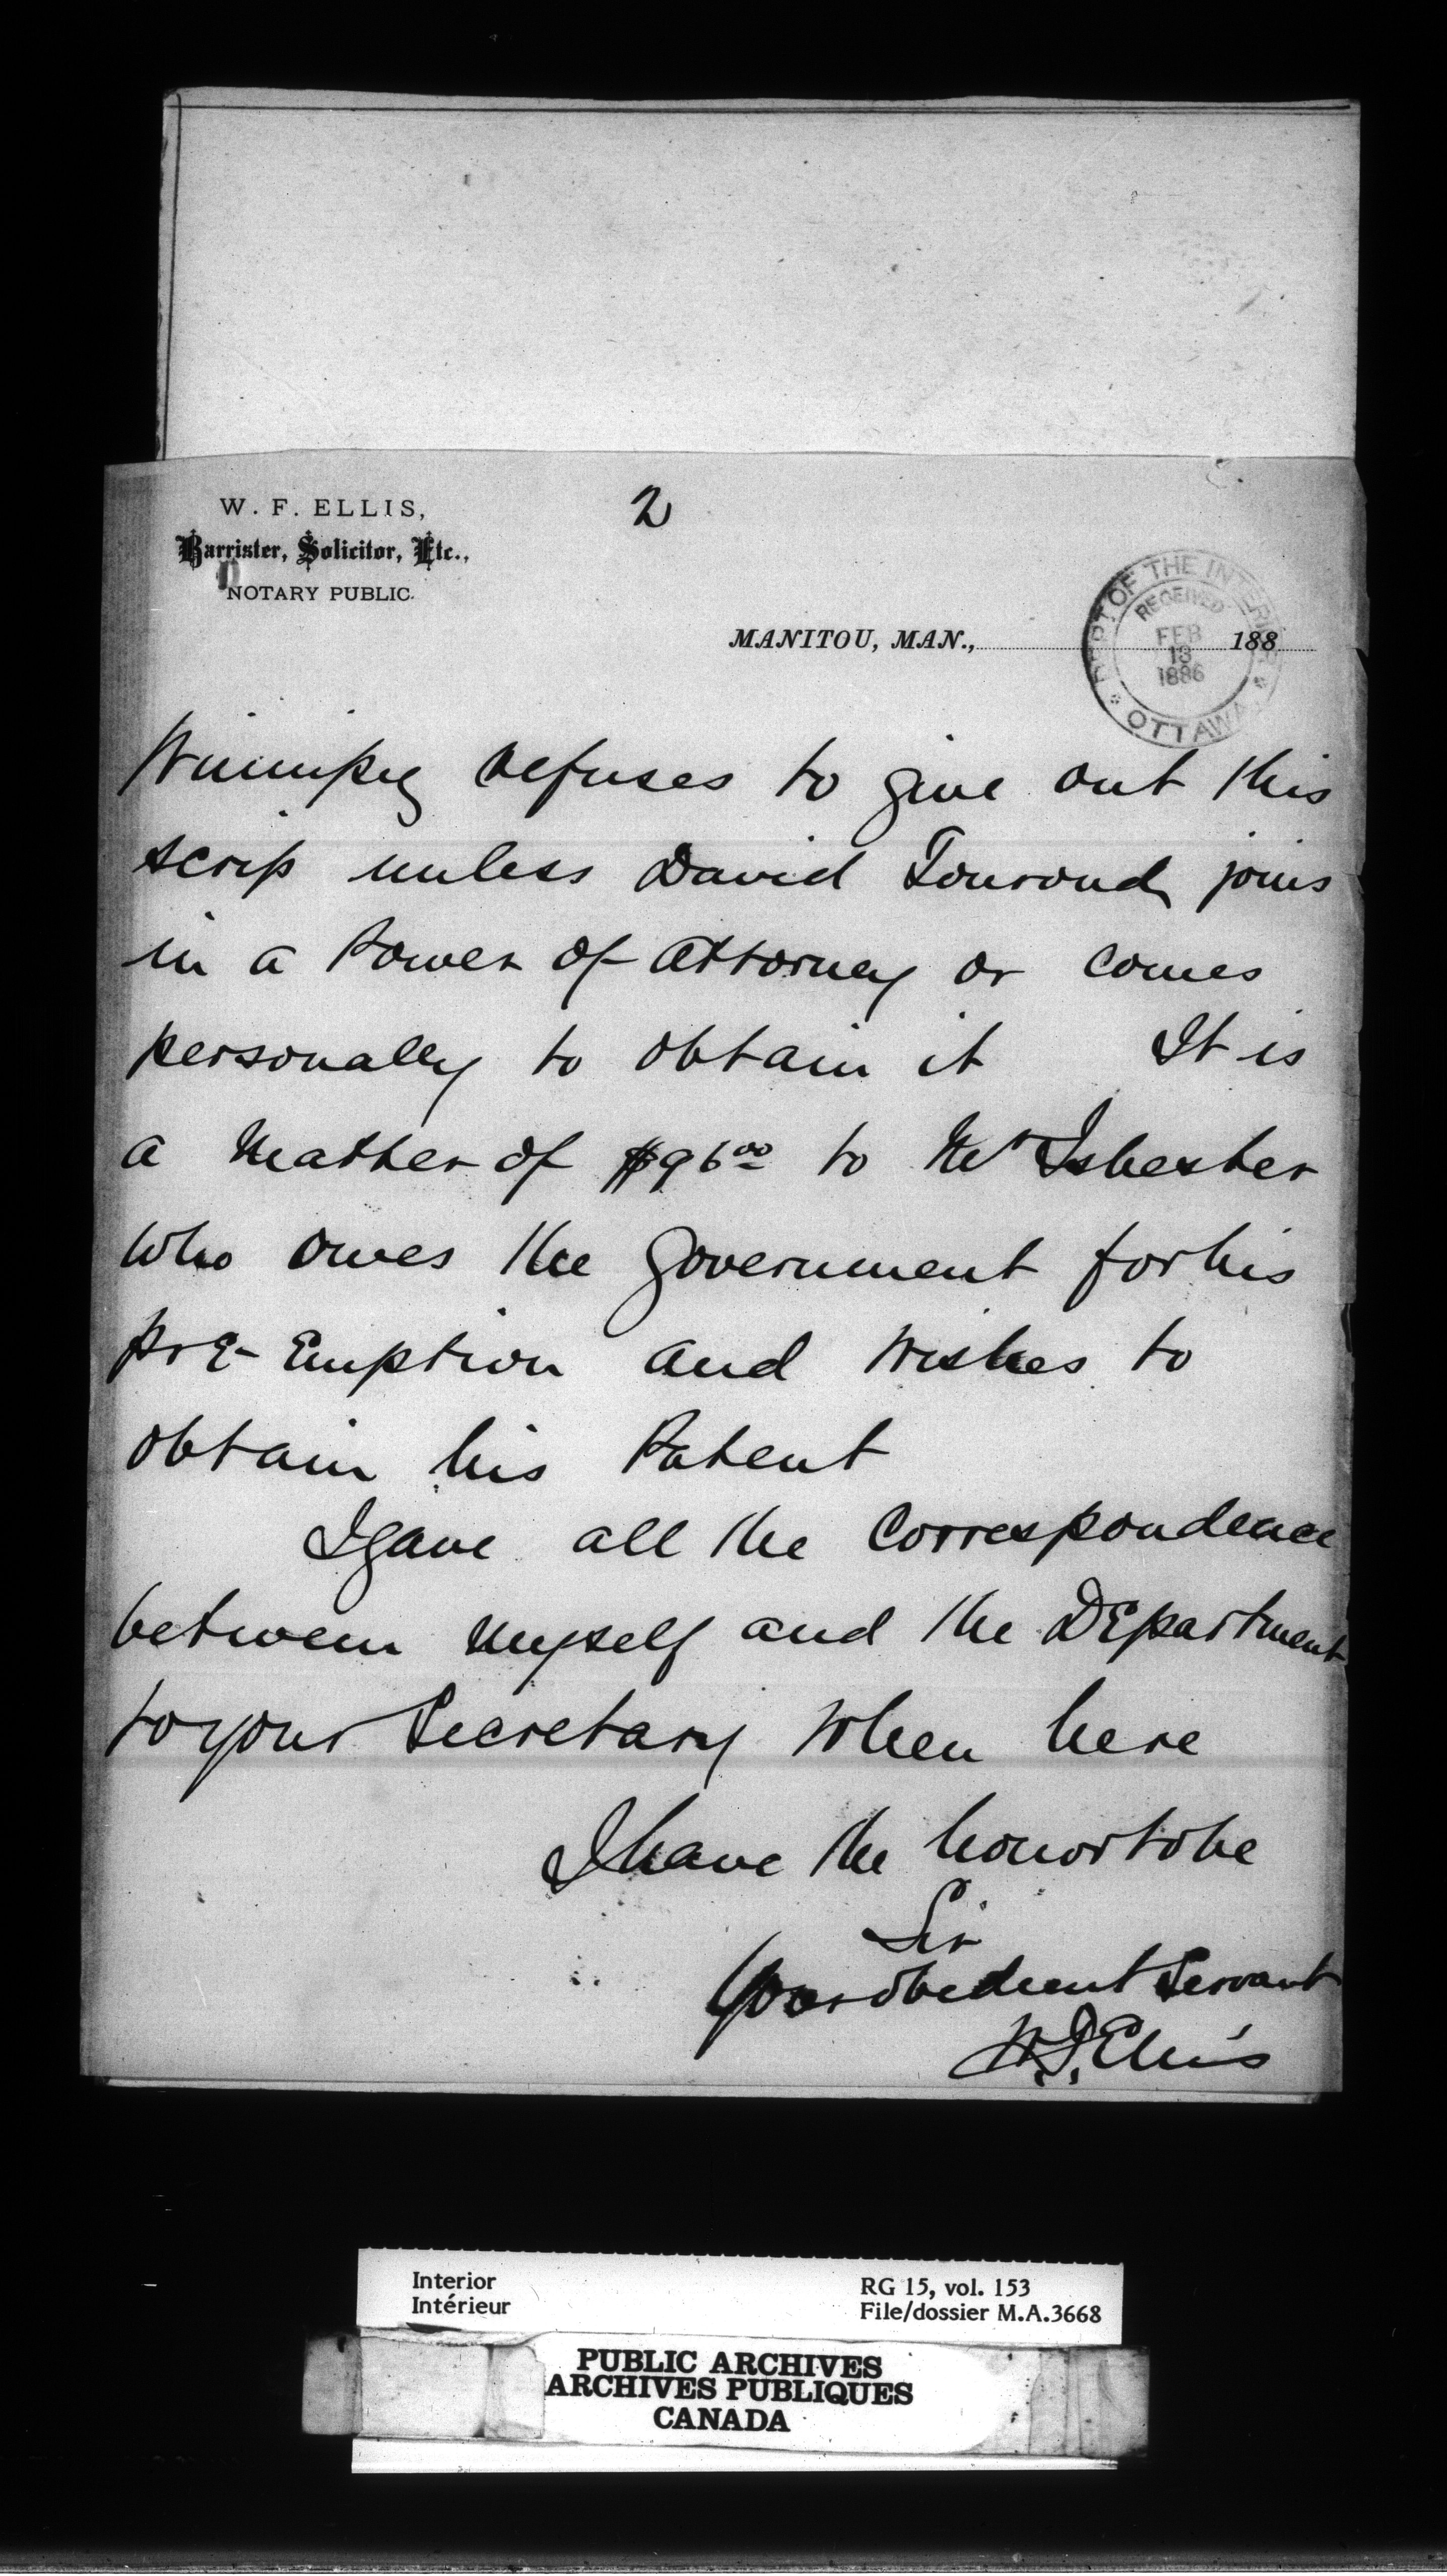 W. F. ELLIS,
Barrister, Solicitor, Etc.,
NOTARY PUBLIC.
2
MANITOU, MAN., 188
DEPT OF THE INTERIOR
RECEIVED
FEB
13
1886
OTTAWA
Winnipeg refuses to give out this
scrip unless David Tourond joins
in a Power of Attorney or comes
personally to obtain it It is
a matter of $96.00 to Mr Isbester
who owes the Government for his
pre-Emption and wishes to
obtain his Patent
I gave all the Correspondence
between myself and the Department
to your Secretary when here
I have the honor to be
Sir
Your obedient Servant
W.F. Ellis
Interior
Intérieur
RG 15, vol. 153
File/dossier M.A.3668
PUBLIC ARCHIVES
ARCHIVES PUBLIQUES
CANADA